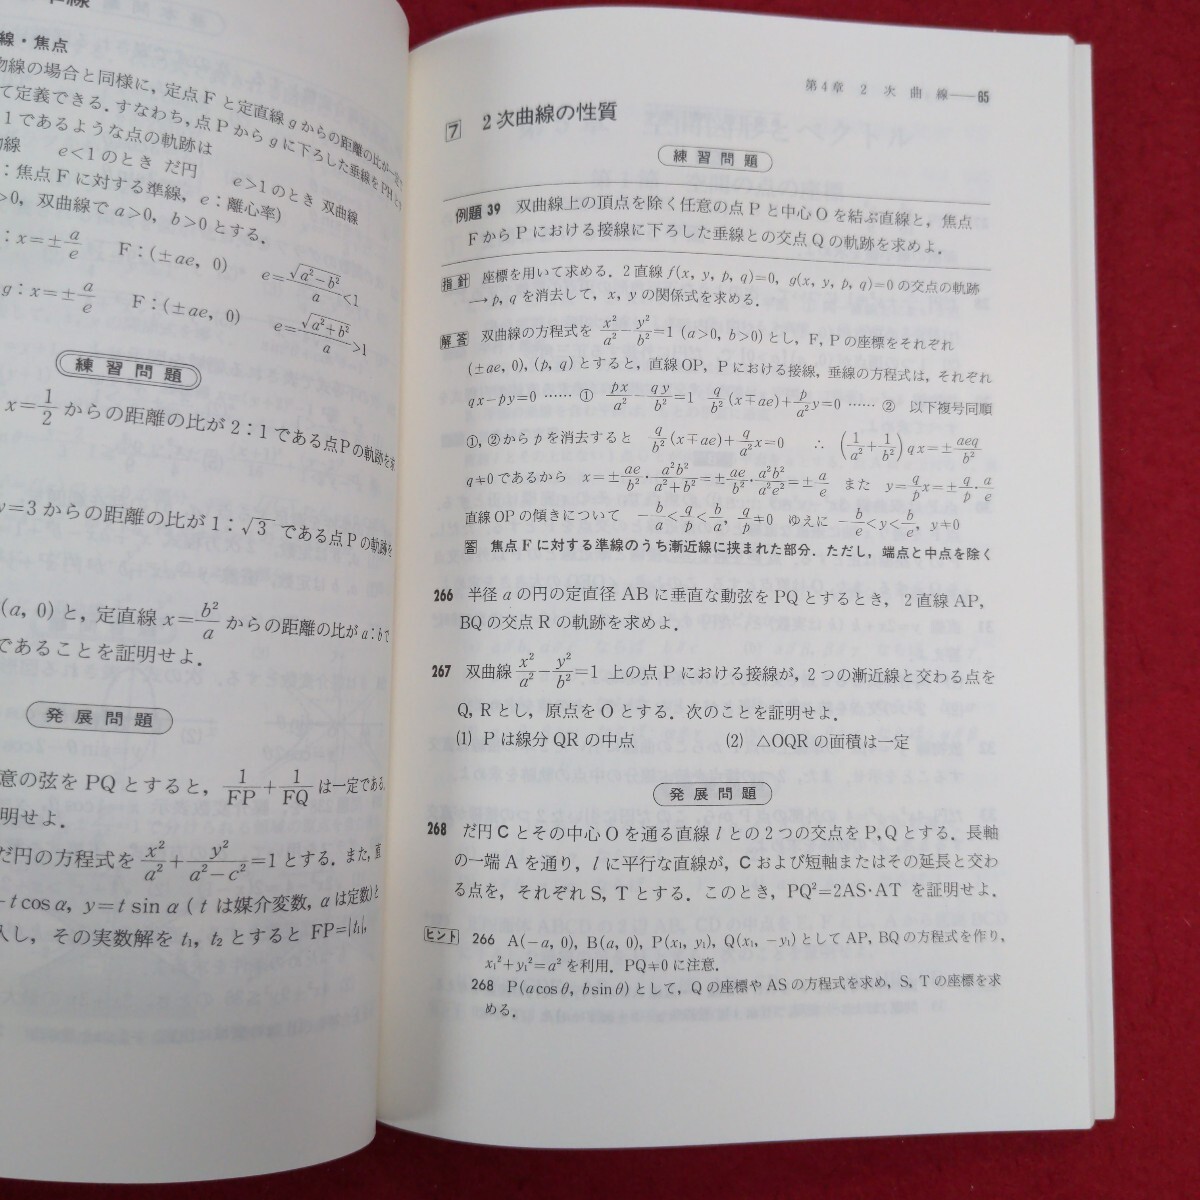 線・焦点
物線の場合と同様に，定点Fと定直線gからの距離の比が一定
て定義できる．すなわち，点Pからgに下ろした垂線をPHと
1であるような点の軌跡は
物線　e<1のとき だ円　e>1のとき 双曲線
：焦点Fに対する準線，e：離心率)
>0，双曲線で a>0，b>0とする．
：x=±a/e　F：(±ae, 0)　e=√(a²−b²)/a<1
g：x=±a/e　F：(±ae, 0)　e=√(a²+b²)/a>1
練習問題
x=1/2 からの距離の比が2：1である点Pの軌跡を求
y=3からの距離の比が1：√3 である点Pの軌跡を
(a, 0)と，定直線 x=b²/a からの距離の比がa：bで
であることを証明せよ．
発展問題
意の弦をPQとすると，1/FP+1/FQ は一定である．
明せよ．
だ円の方程式を x²/a²+y²/(a²−c²)=1とする．また，直
t cos α，y=t sin α (tは媒介変数，αは定数)と
入し，その実数解を t₁，t₂とすると FP=|t₁|，
第4章 2 次 曲 線——65
7 2次曲線の性質
練習問題
例題 39 双曲線上の頂点を除く任意の点Pと中心Oを結ぶ直線と，焦点
FからPにおける接線に下ろした垂線との交点Qの軌跡を求めよ．
指針 座標を用いて求める．2直線 f(x, y, p, q)=0，g(x, y, p, q)=0の交点の軌跡
→p, qを消去して，x, yの関係式を求める．
解答 双曲線の方程式を x²/a²−y²/b²=1 (a>0, b>0)とし，F, Pの座標をそれぞれ
(±ae, 0)，(p, q)とすると，直線OP，Pにおける接線，垂線の方程式は，それぞれ
qx−py=0 …… ①　px/a²−qy/b²=1　q/b²(x∓ae)+p/a²y=0 …… ②　以下複号同順
①，②からpを消去すると　q/b²(x∓ae)+q/a²x=0　∴　(1/a²+1/b²)qx=±aeq/b²
q≠0であるから　x=±ae/b²・a²b²/(a²+b²)=±ae/b²・a²b²/a²e²=±a/e　また　y=q/p x=±q/p・a/e
直線OPの傾きについて　−b/a<q/p<b/a，q/p≠0　ゆえに −b/e<y<b/e，y≠0
答 焦点Fに対する準線のうち漸近線に挟まれた部分．ただし，端点と中点を除く
266 半径aの円の定直径ABに垂直な動弦をPQとするとき，2直線AP，
BQの交点Rの軌跡を求めよ．
267 双曲線 x²/a²−y²/b²=1 上の点Pにおける接線が，2つの漸近線と交わる点を
Q，Rとし，原点をOとする．次のことを証明せよ．
(1) Pは線分QRの中点　(2) △OQRの面積は一定
発展問題
268 だ円Cとその中心Oを通る直線lとの2つの交点をP, Qとする．長軸
の一端Aを通り，lに平行な直線が，Cおよび短軸またはその延長と交わ
る点を，それぞれS，Tとする．このとき，PQ²=2AS・ATを証明せよ．
ヒント 266 A(−a, 0)，B(a, 0)，P(x₁, y₁)，Q(x₁, −y₁)としてAP，BQの方程式を作り，
x₁²+y₁²=a² を利用．PQ≠0に注意．
268 P(a cos θ, b sin θ)として，Qの座標やASの方程式を求め，S，Tの座標を求
める．